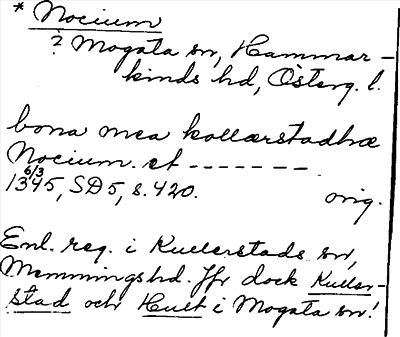 * Nocium
? Mogata sn, Hammar-
kinds hd, Österg. l.
bona mea kollærstadhæ
Nocium. et - - - - - - -
6/3
1345, SD5, s. 420.
orig.
Enl. reg. i Kullerstads sn,
Memmings hd. Jfr dock Kuller-
stad och Hult i Mogata sn!